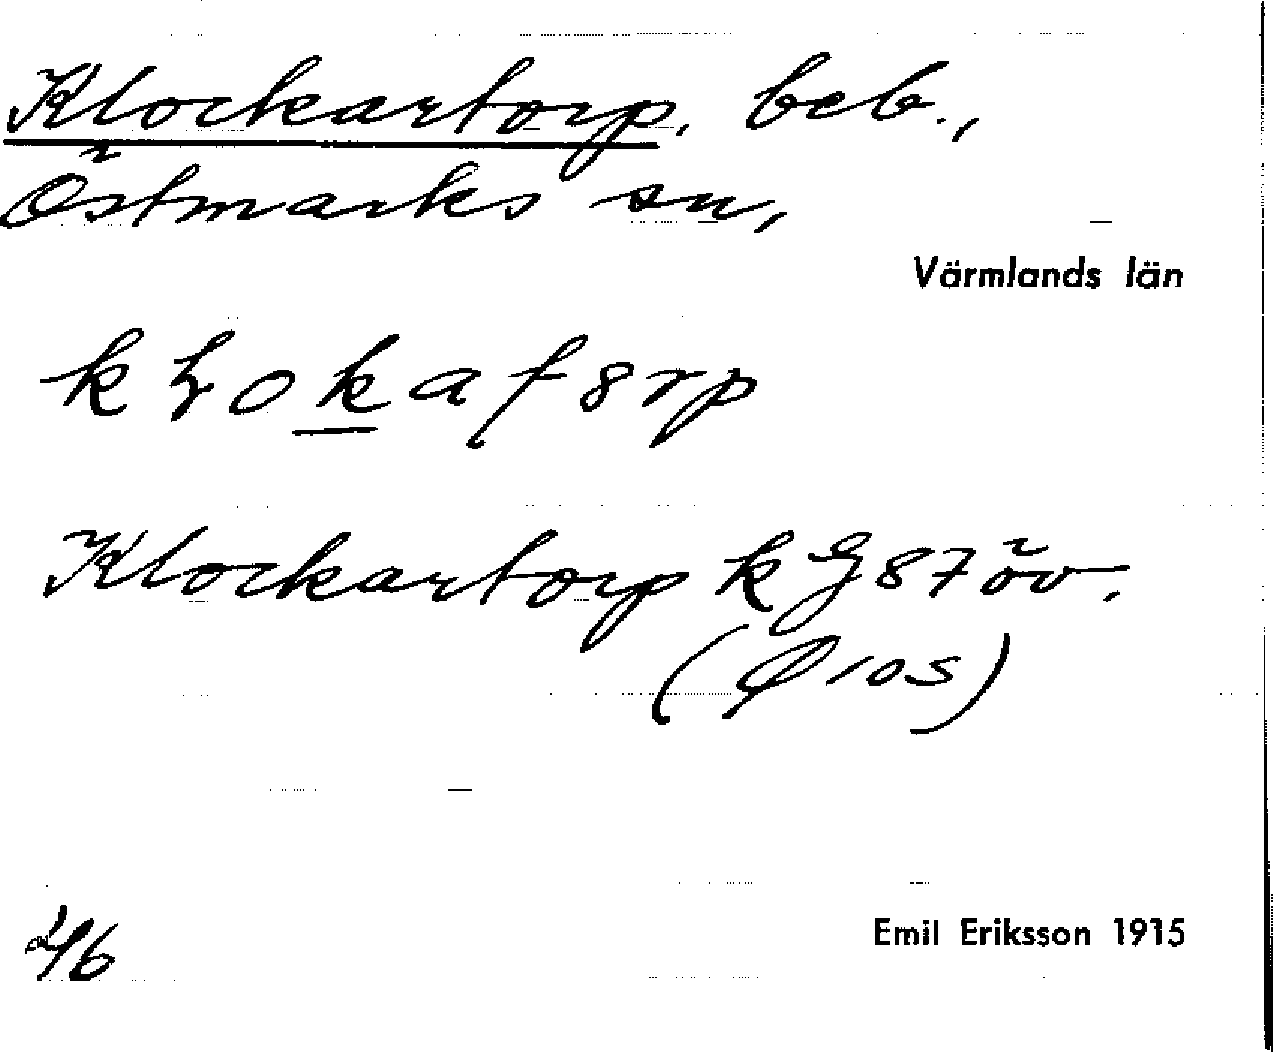 Klockartorp, beb.,
Östmarks sn,
Värmlands län
Klockartorp k G 87 öv.
(Ø 105)
Emil Eriksson 1915